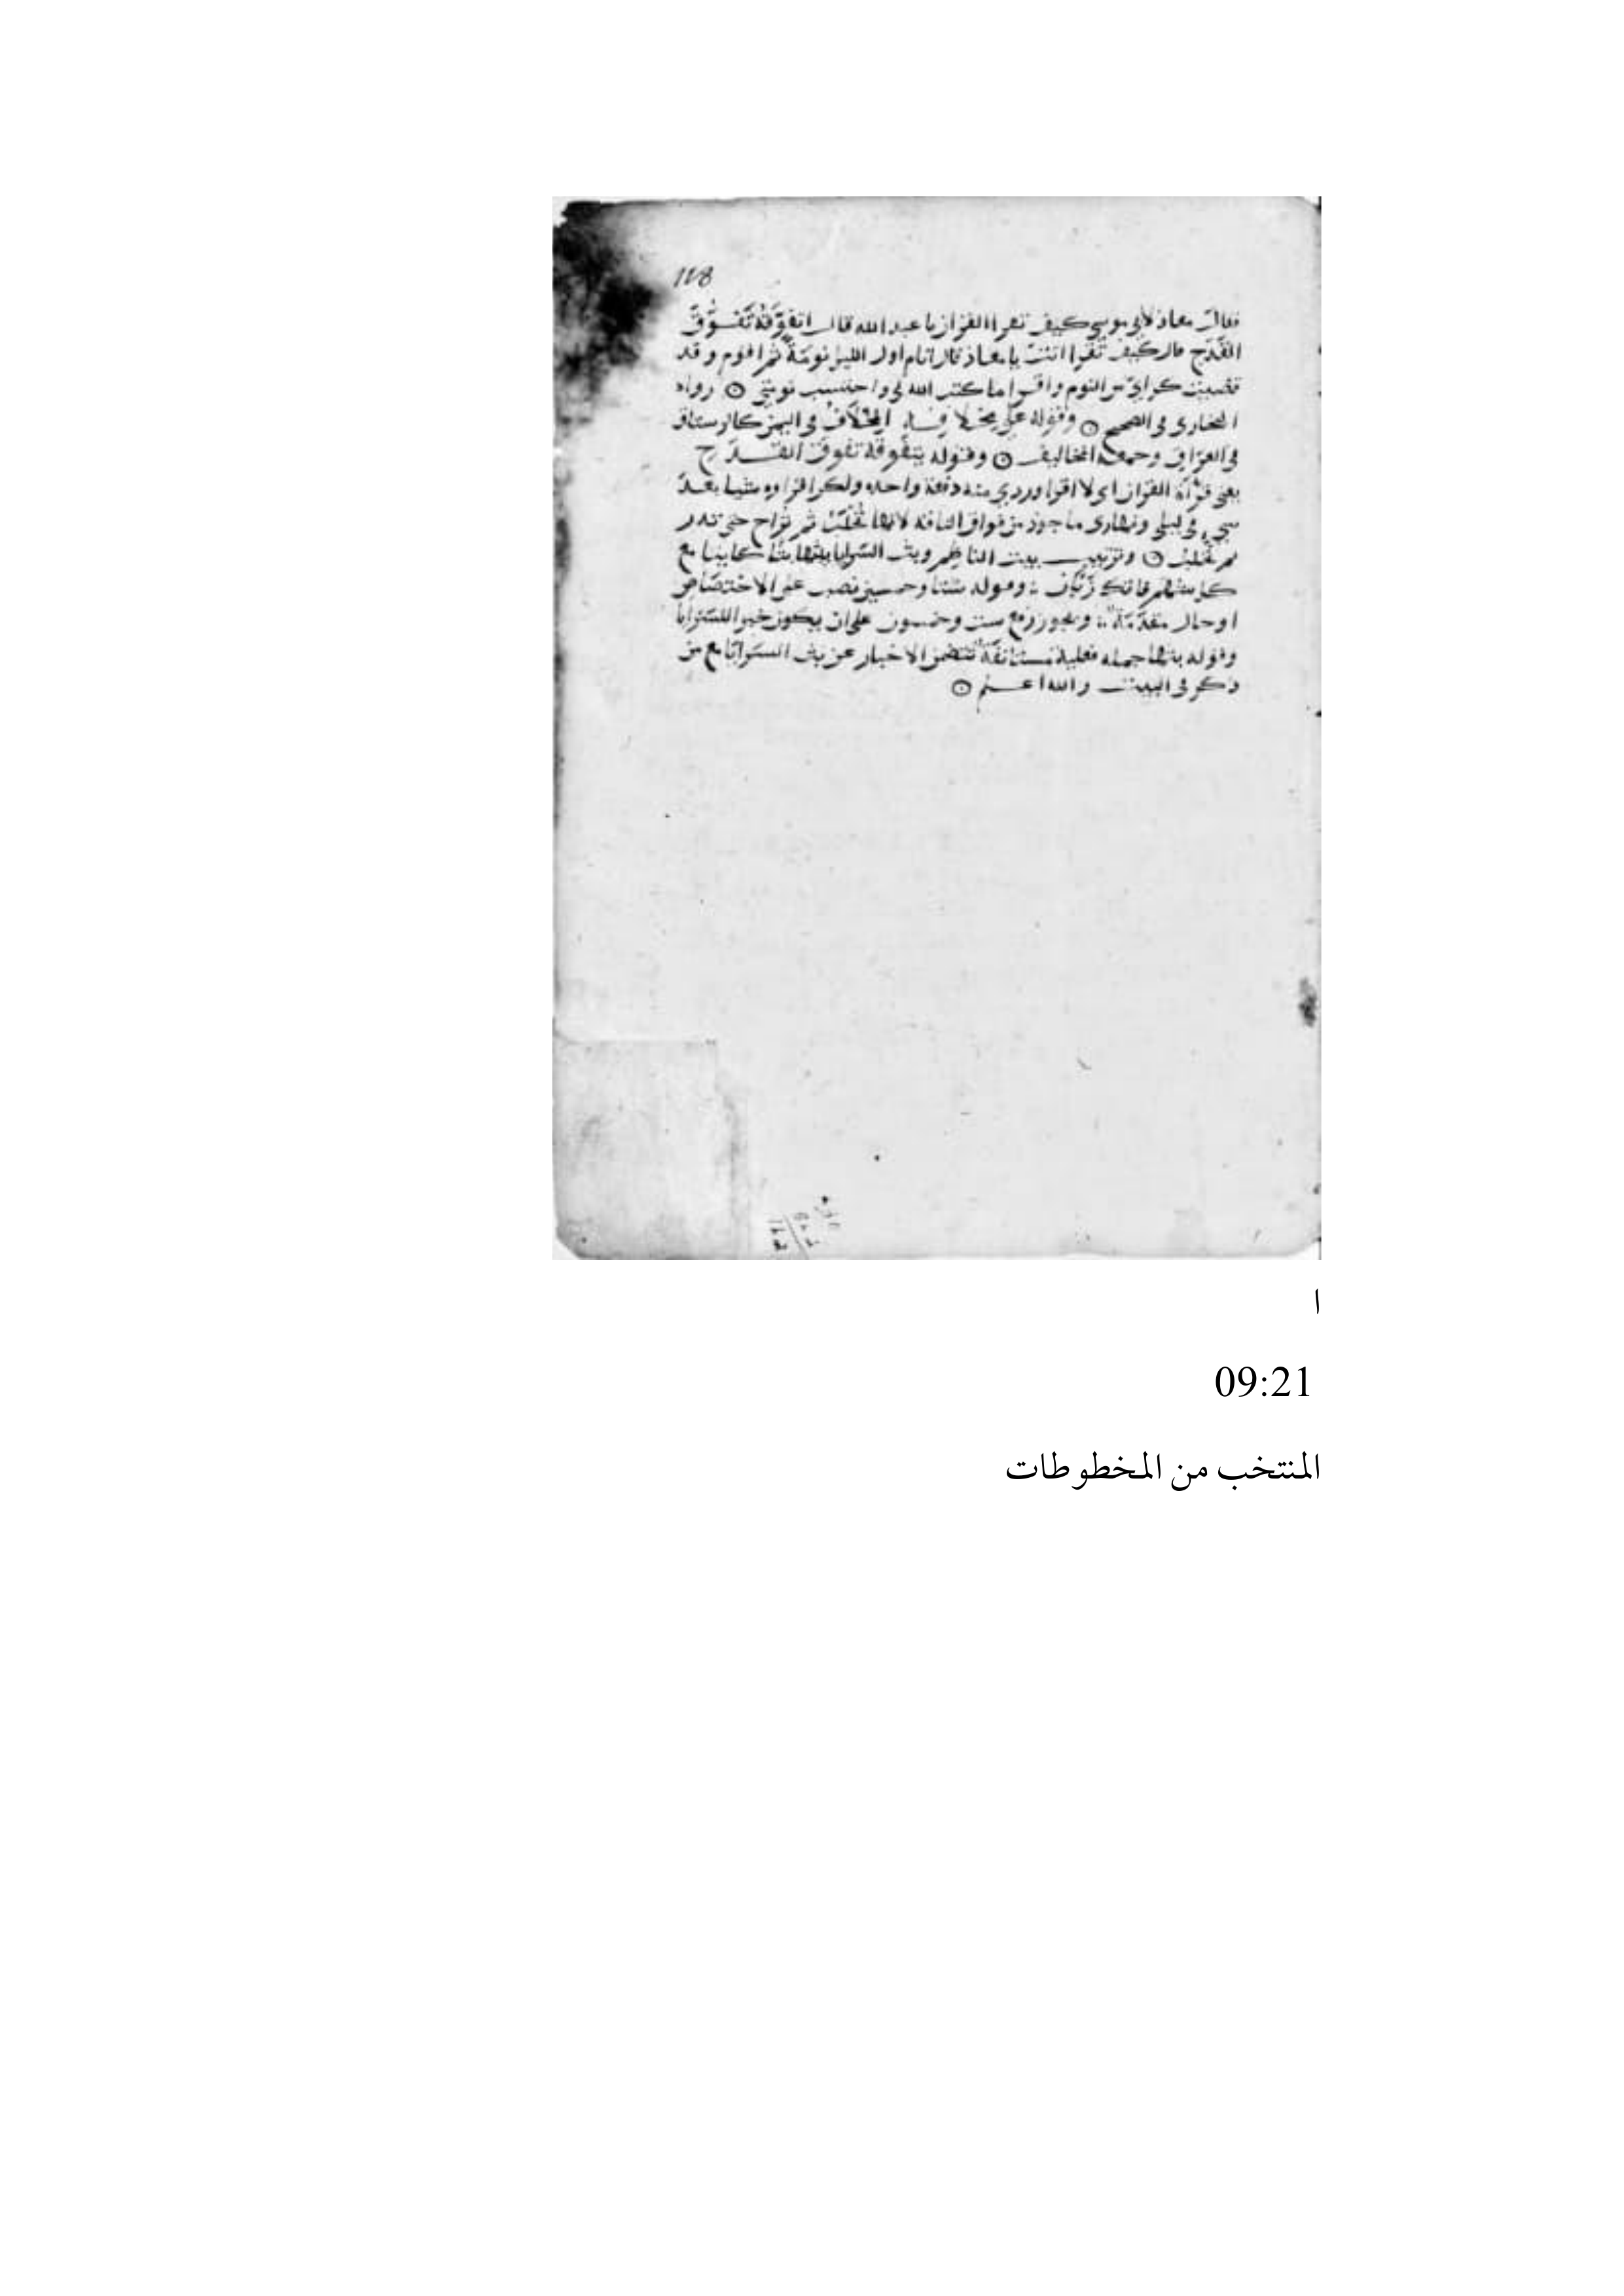 118
فقال معاذ لابي موسى كيف تقرا القران يا عبد الله قال اتفوقه تفوق
القدح قال كيف تقرا انت يا معاذ قال انام اول الليل نومة ثم اقوم وقد
قضيت كراي من النوم واقرا ما كتب الله لي واحتسب نومتي رواه
البخاري في الصحيح وقوله على مخلافه المخلاف في اليمن كالرستاق
في العراق وجمعه المخاليف وقوله يتفوقه تفوق القدح
يعني قراة القران اي لا اقرا وردي منه دفعة واحده ولكن اقراوه شيا بعد
شي في ليلي ونهاري ماخوذ من فواق الناقه لانها تحلب ثم تراح حتى تدر
ثم تحلب وترتيب بيت الناظم وبث السرايا بثها بثا كاينا مع
كل شهم فاتك وقوله ستا وخمسين نصب على الاختصاص
او حال مقدمة ويجوز رفع ست وخمسون على ان يكون خبرا للسرايا
وقوله بثها جمله فعلية مستانفة تتضمن الاخبار عن بث السرايا مع من
ذكر في البيت والله اعلم
ا
09:21
المنتخب من المخطوطات